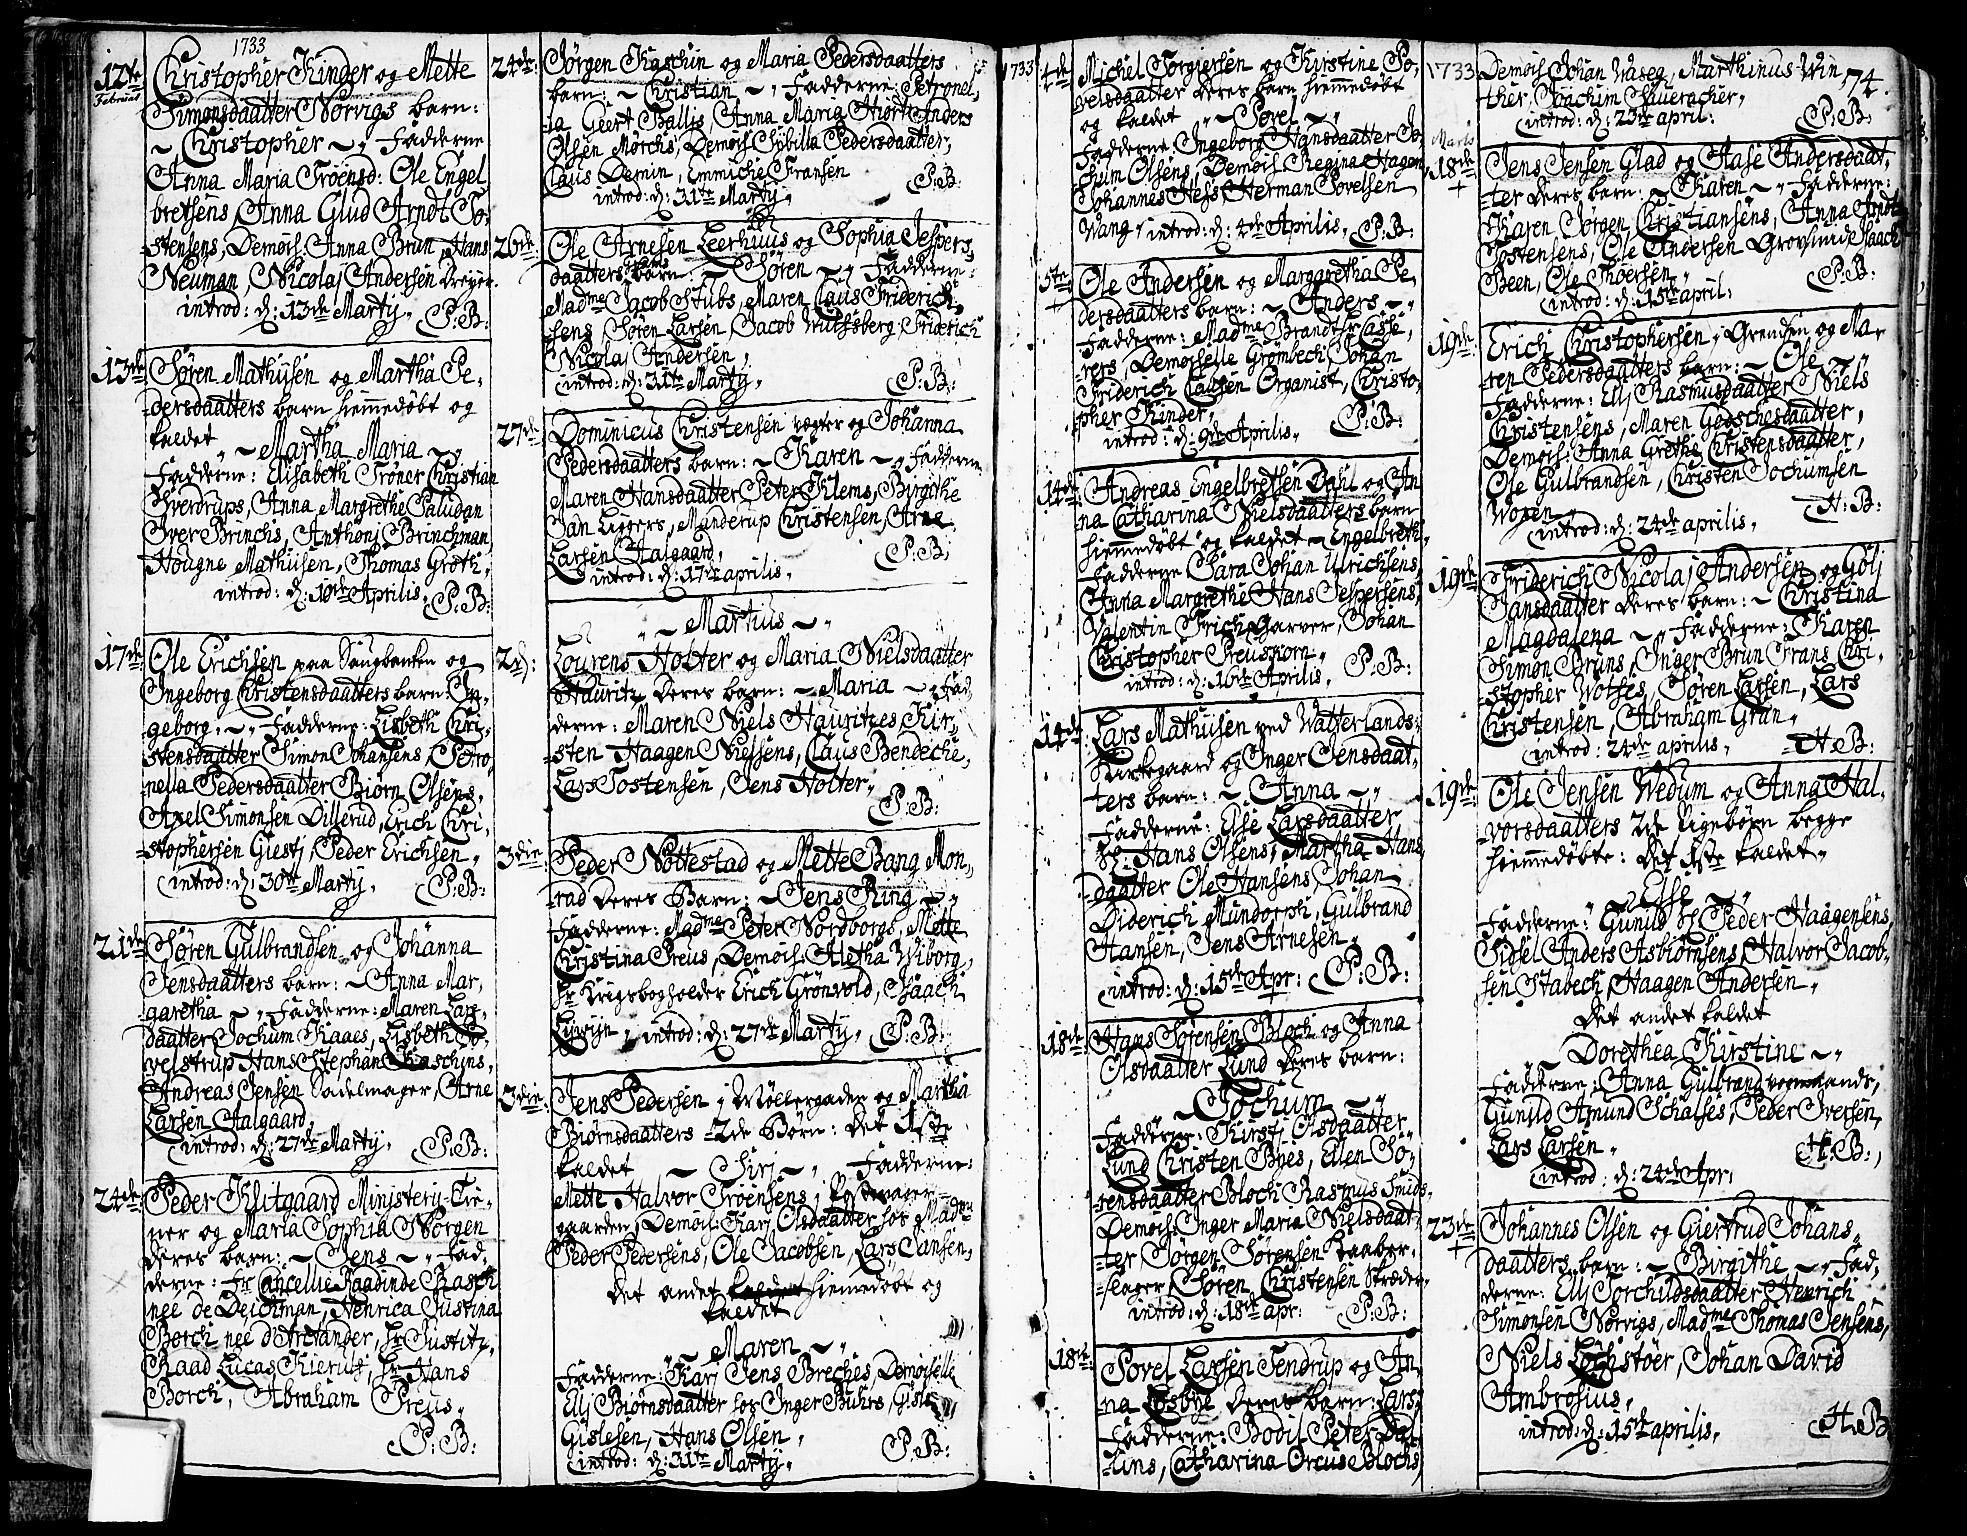 1733
12te Februar Christopher Kinder og Mette
Simonsdaatter Nørvigs barn:
Christopher Fadderne
Anna Maria Trøensd: Ole Engel
bretsens, Anna Glud Arndt To-
stensens, Demois. Anna Brun, Hans
Neuman, Nicolaj Andersen Dreyer.
introd: d: 13de Martij. P:B:
13de Søren Mathisen og Martha Pe-
dersdaatters barn hiemmedøbt og
kaldet Martha Maria
Fadderne: Elisabeth Trøner Christian
Sverdrups, Anna Margrethe Paludan
Iver Brinchs, Anthonj Brinchman
Hougne Mathisen, Thomas Groth.
introd: d: 10de Aprilis. P:B:
17de Ole Erichsen paa Saugbanken og
Ingeborg Christensdaatters barn: In-
geborg. Fadderne: Lisbeth Chri-
stensdaatter Simon Johansens, Petro-
nella Pedersdaatter Biørn Olsens,
Axel Simonsen Dillerud, Erich Chri-
stophersen Giesti, Peder Erichsen,
introd: d: 30te Martij. P:B:
21de Søren Gulbrandsen og Johanna
Jensdaatters barn: Anna Mar-
garetha Fadderne: Maren Lars-
daatter Jochum Kaaes, Lisbeth Po-
velstrup Hans Stephan Kaschins,
Andreas Jensen Sadelmager, Arne
Larsen Aalgaard,
introd: d: 27de Martij. P:B:
24de Peder Klitgaard Ministerij Tie-
ner og Maria Sophia Nørgen
deres barn: Jens Fad-
derne: Fr Cancellie Raadinde Rasch
nee de Deichman, Henrica Justina
Borch nee d'Arctander, Hr Justitz-
Raad Lucas Kierulf, Hr Hans
Borch, Abraham Preus.
P:B:
24de: Jørgen Kaschin og Maria Pedersdaatters
barn: Christian Fadderne: Petronel-
la Geert Ballis, Anna Maria Hiort Anders
Olsen Mørchs, Demois Sybilla Pedersdaatter,
Claus Demin, Emmiche Fransen
introd: d: 31te Martij. P:B:
26de Ole Arnesen Leerhuus og Sophia Jespers
daatters barn: Søren Fadderne:
Madme Jacob Stubs, Maren Claus Friderich-
sens, Søren Larsen, Jacob Wulfsberg, Friderich
Nicolaj Andersen,
introd: d: 31te Martij. P:B:
27de Dominicus Christensen vægter og Johanna
Pedersdaatters barn: Karen Fadderne
Maren Hansdaatter Peter Klems, Birgithe
Jan Liggers, Manderup Christensen, Arne
Larsen Aalgaard,
introd: d: 17de aprilis. P:B:
Martius
2d: Lourens Holter og Maria Nielsdaatter
Hauritz deres barn: Maria Fad
derne: Maren Niels Hauritzes, Kir-
sten Haagen Nielsens, Claus Bendeche,
Lars Tostensen, Jens Holter,
P:B:
3die Peder Nøttestad og Mette Bang Mon-
rad deres Barn: Jens Ring
Fadderne: Madme Peter Nordborgs, Mette
Christina Preus, Demois: Aletha Wiborg,
Hr Krigsbogholder Erich Grønvold, Isaach
introd: d: 27de Martij. P:B:
3die: Jens Pedersen i Møllergaden og Martha
Biørnsdaatters 2de Børn: Det 1ste
kaldet Siri Fadderne:
Mette Halvor Trøensens i
gaarden, Demois. Karj Olsdaatter hos Madme
Peder Pedersens, Ole Jacobsen, Lars Jansen,
Det andet hiemmedøbt og
kaldet
Maren
Fadderne: Karj Jens Breches, Demoiselle
Ellj Biørnsdaatter hos Inger Buhrs, Gisle
Gislesen, Hans Olsen,
introd: d: 31te Martij. P:B:
1733
4de Michel Torgiersen og Kirstine Po-
velsdaatter deres barn hiemmedøbt
og kaldet Povel
Fadderne Ingeborg Hansdaatter Jo-
chum Olsens, Demois. Regina Hagen
Johannes Hess, Herman Povelsen
Wang, introd: d: 4de Aprilis. P:B:
5te Ole Andersen og Margaretha Pe-
dersdaatters barn: Anders
Fadderne: Madme Brandt Casse-
rers, Demoiselle Grømbech, Johan
Friderich Clasen Organist, Christo-
pher Kinder,
introd: d: 9de Aprilis. P:B:
14de Andreas Engelbretsen Dahl og An
na Catharina Nielsdaatters barn
hiemmedøbt og kaldet Engelbreth,
Fadderne Sara Johan Ulrichsens,
Anna Margrethe Hans Jespersens,
Valentin Frich Garver, Johan
Christopher Preushorn.
introd: d: 16de Aprilis. P:B:
14de: Lars Mathisen ved Watterlands-
Kirkegaard og Inger Jensdaat-
ters barn: Anna
Fadderne: Else Larsdaatter
Sl: Hans Olsens, Martha Hans
daatter Ole Hansens, Johan
Diderich Mundorph, Gulbrand
Hansen, Jens Arnesen.
introd: d: 15de Apr: P:B:
18de Hans Sørensen Bloch og Anna
Olsdaatter Lund deres barn:
Jochum
Fadderne: Kirsti Olsdaatter
Lund Christen Byes, Ellen Sø-
rensdaatter Bloch Rasmus Smids,
Demois: Inger Maria Nielsdaat-
ter, Jørgen Sørensen Kaaber-
slager, Søren Christensen Skræder,
introd: d: 18de apr: P:B:
18de Povel Larsen Tendrup og An
na Losbye deres barn: Lars
Fadderne: Bodil Peter Dal-
lins, Catharina Preus Blochs,
1733
Demois. Johan Waseg, Marthinus Win 74.
ther, Joachim Saueracher,
introd: d: 23de april: P:B:
Marts
18de Jens Jensen Glad og Aase Andersdaat-
ter deres barn: Karen Fadderne:
Karen Jørgen Christiansens, Anna Arndt
Tostensens, Ole Andersen Grovsmid, Isaach
Been, Ole Thoersen.
introd: d: 15de april. P:B:
19de: Erich Christophersen Grensen og Ma-
ren Pedersdaatters barn: Ole
Fadderne: Ellj Rasmusdaatter Niels
Christensens, Maren Gedschesdaatter,
Demois: Anna Grethe Christensdaatter,
Ole Gulbrandsen, Christen Jochumsen
Woxen.
introd: d: 24de aprilis. H:B:
19de Friderich Nicolaj Andersen og Golj
Jansdaatter deres barn: Christina
Magdalena Fadderne: Karen
Simon Bruns, Inger Brun Frans Chri-
stopher Wolfes, Søren Larsen, Lars
Christensen, Abraham Gran.
introd: 24de aprilis. H:B:
19de: Ole Jensen Wedum og Anna Hal-
vorsdaatters 2de tigebørn begge
hiemmedøbte: Det 1ste kaldet
Else
Fadderne: Gunild Sl Peder Haagensens,
Sidsel Anders Asbiørnsens, Halvor Jacob-
sen Stabech, Haagen Andersen.
Det andet kaldet
Dorethea Kirstine
Fadderne: Anna Gulbrand vognmands,
Gunild Amund Schalses, Peder Iversen,
Lars Larsen. H:B:
introd: d: 24de Apr.
23de Johannes Olsen og Giertrud Johans-
daatters barn: Birgithe Fad-
derne: Ellj Torchildsdaatter Henrich
Simonsen Nørvigs, Madme Thomas Jensens,
Niels Lochstøer, Johan David
Ambrosius.
introd: d: 15de aprilis. H:B